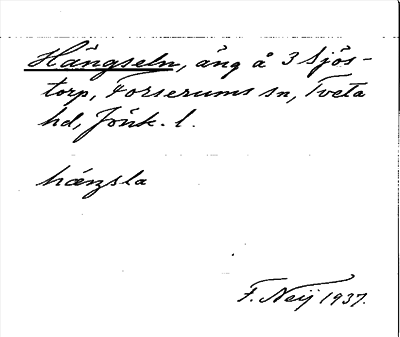 Hängseln, äng å 3 Sjös-
torp, Forserums sn, Tveta
hd, Jönk. l.
hæŋsla
F. Neij 1937.